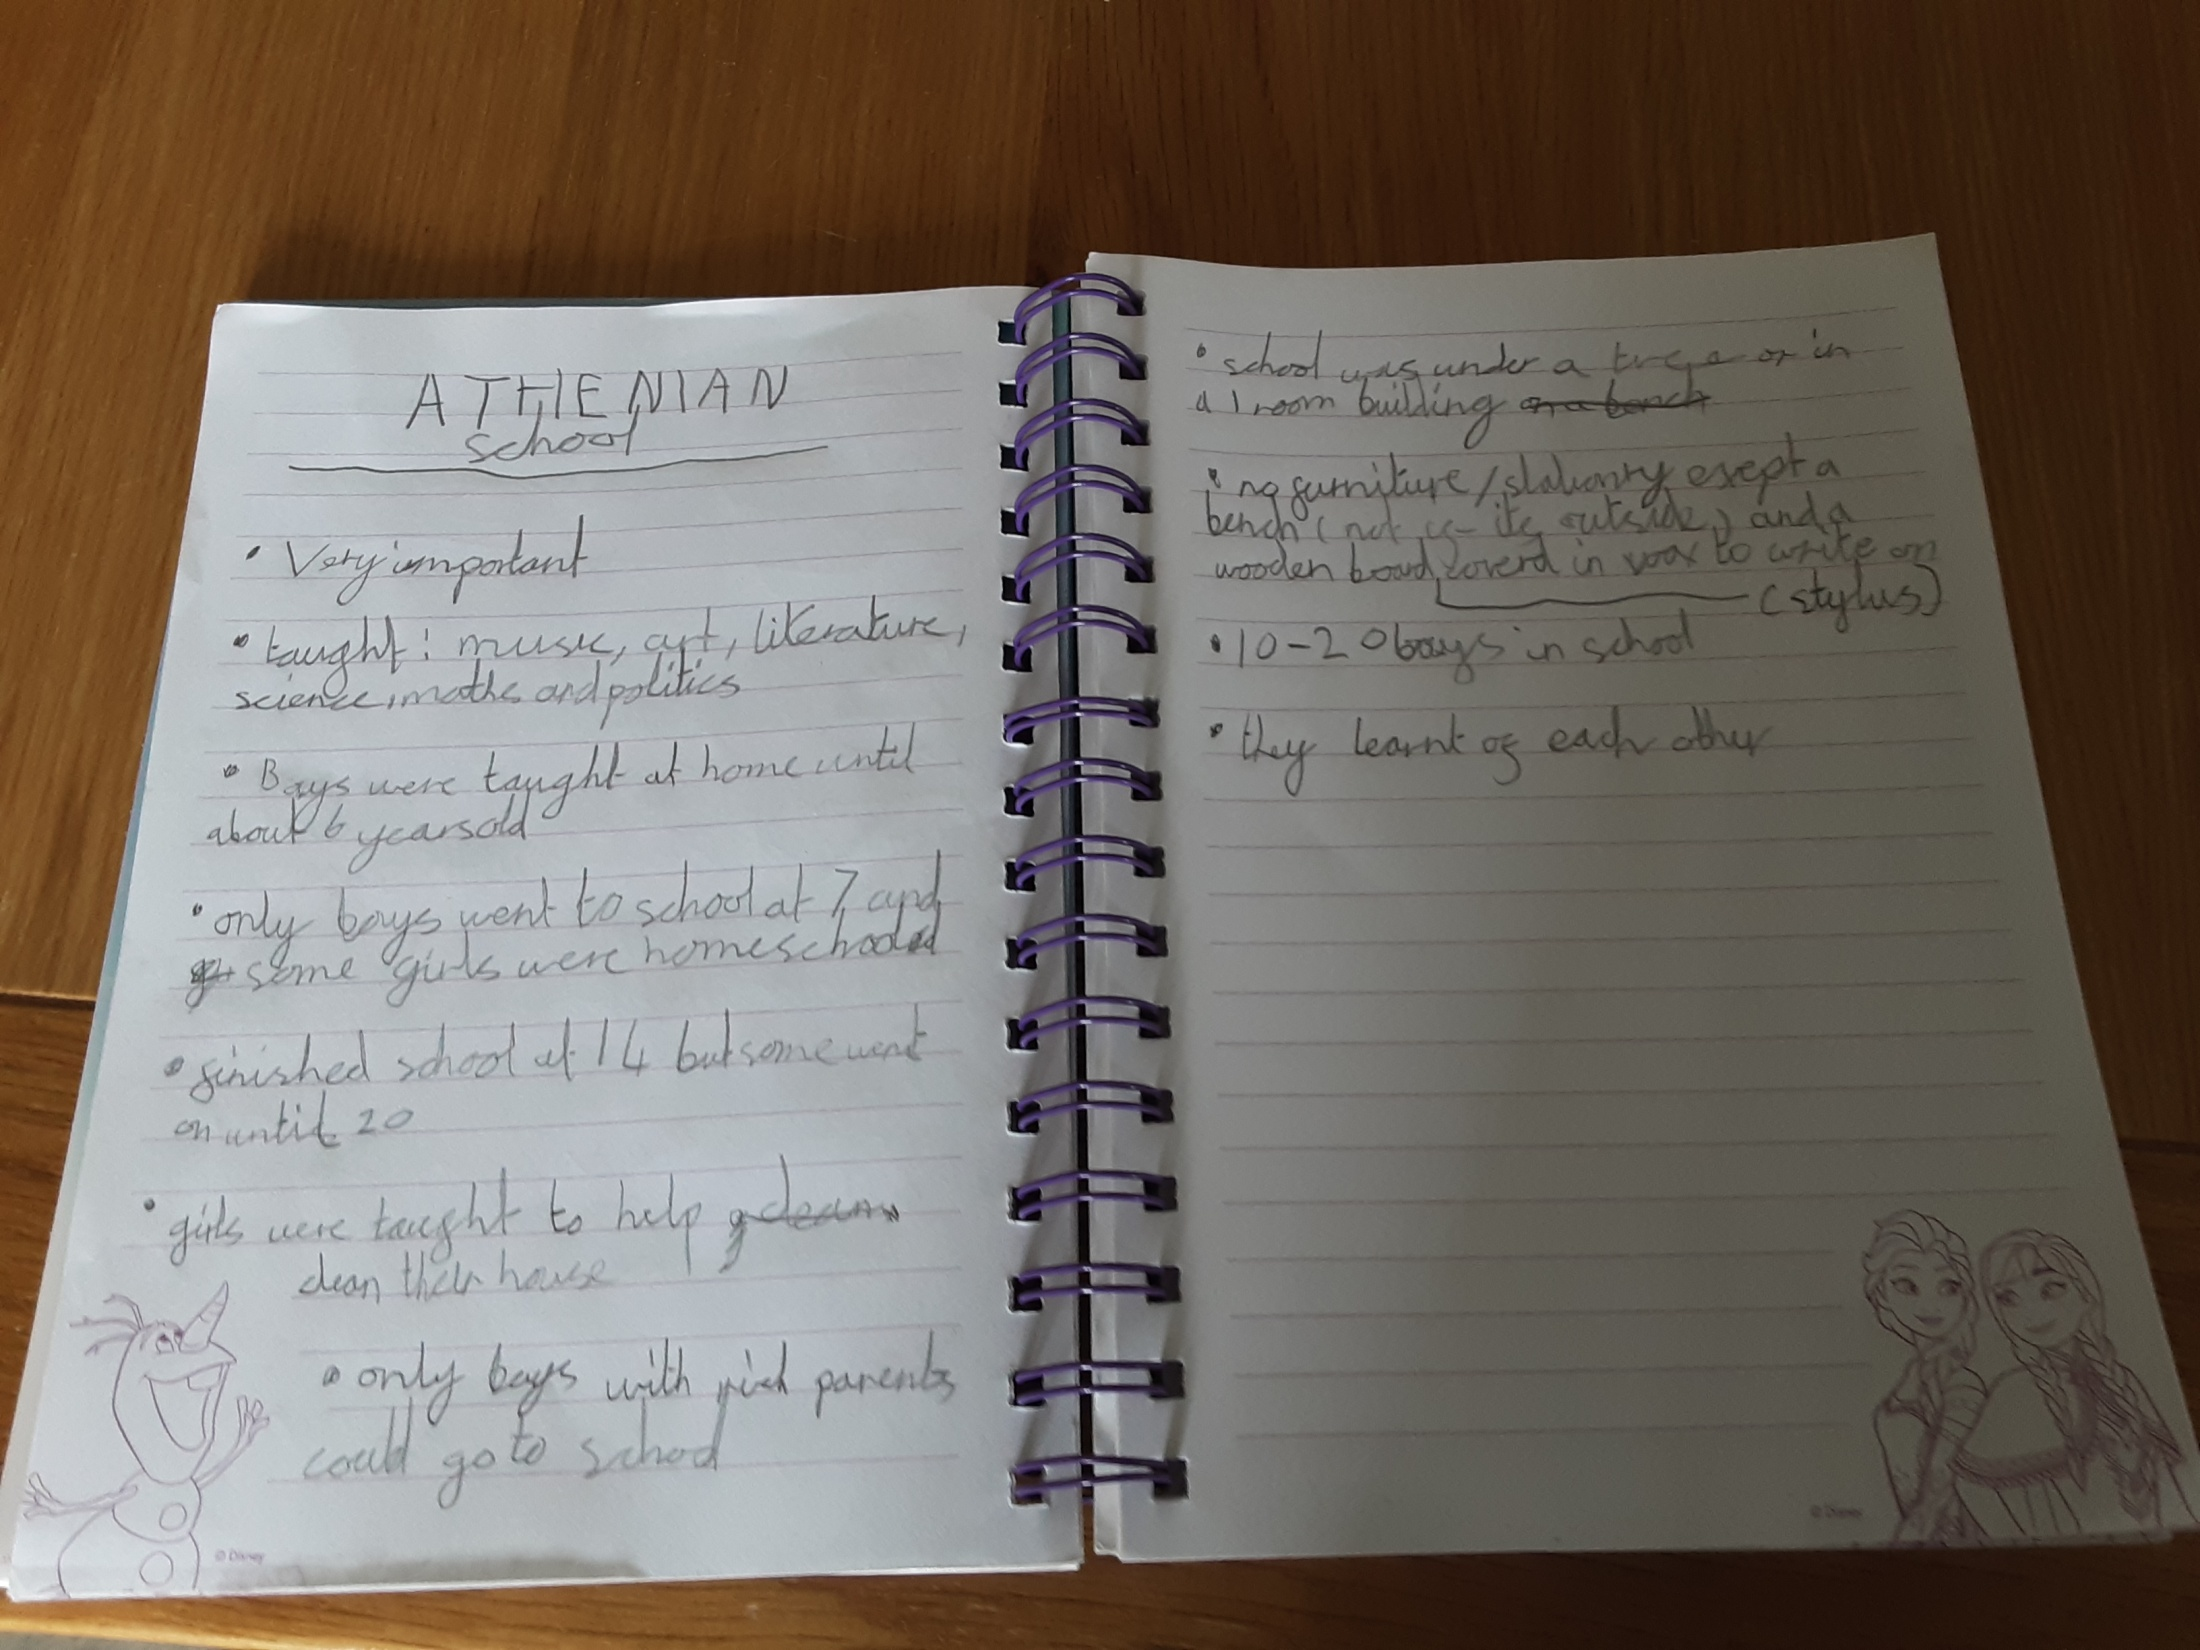 ATHENIAN
school
• Very important
• taught: music, art, literature,
science, maths and politics
• Boys were taught at home until
about 6 years old
• only boys went to school at 7 and
some girls were homeschooled
• finished school at 14 but some went
on until 20
• girls were taught to help clean
clean their house
• only boys with rich parents
could go to school
© Disney
• school was under a tree or in
a 1 room building on a bench
• no furniture/stationry exept a
bench (not if its outside) and a
wooden board coverd in wax to write on
(stylus)
• 10-20 boys in school
• they learnt of each other
© Disney